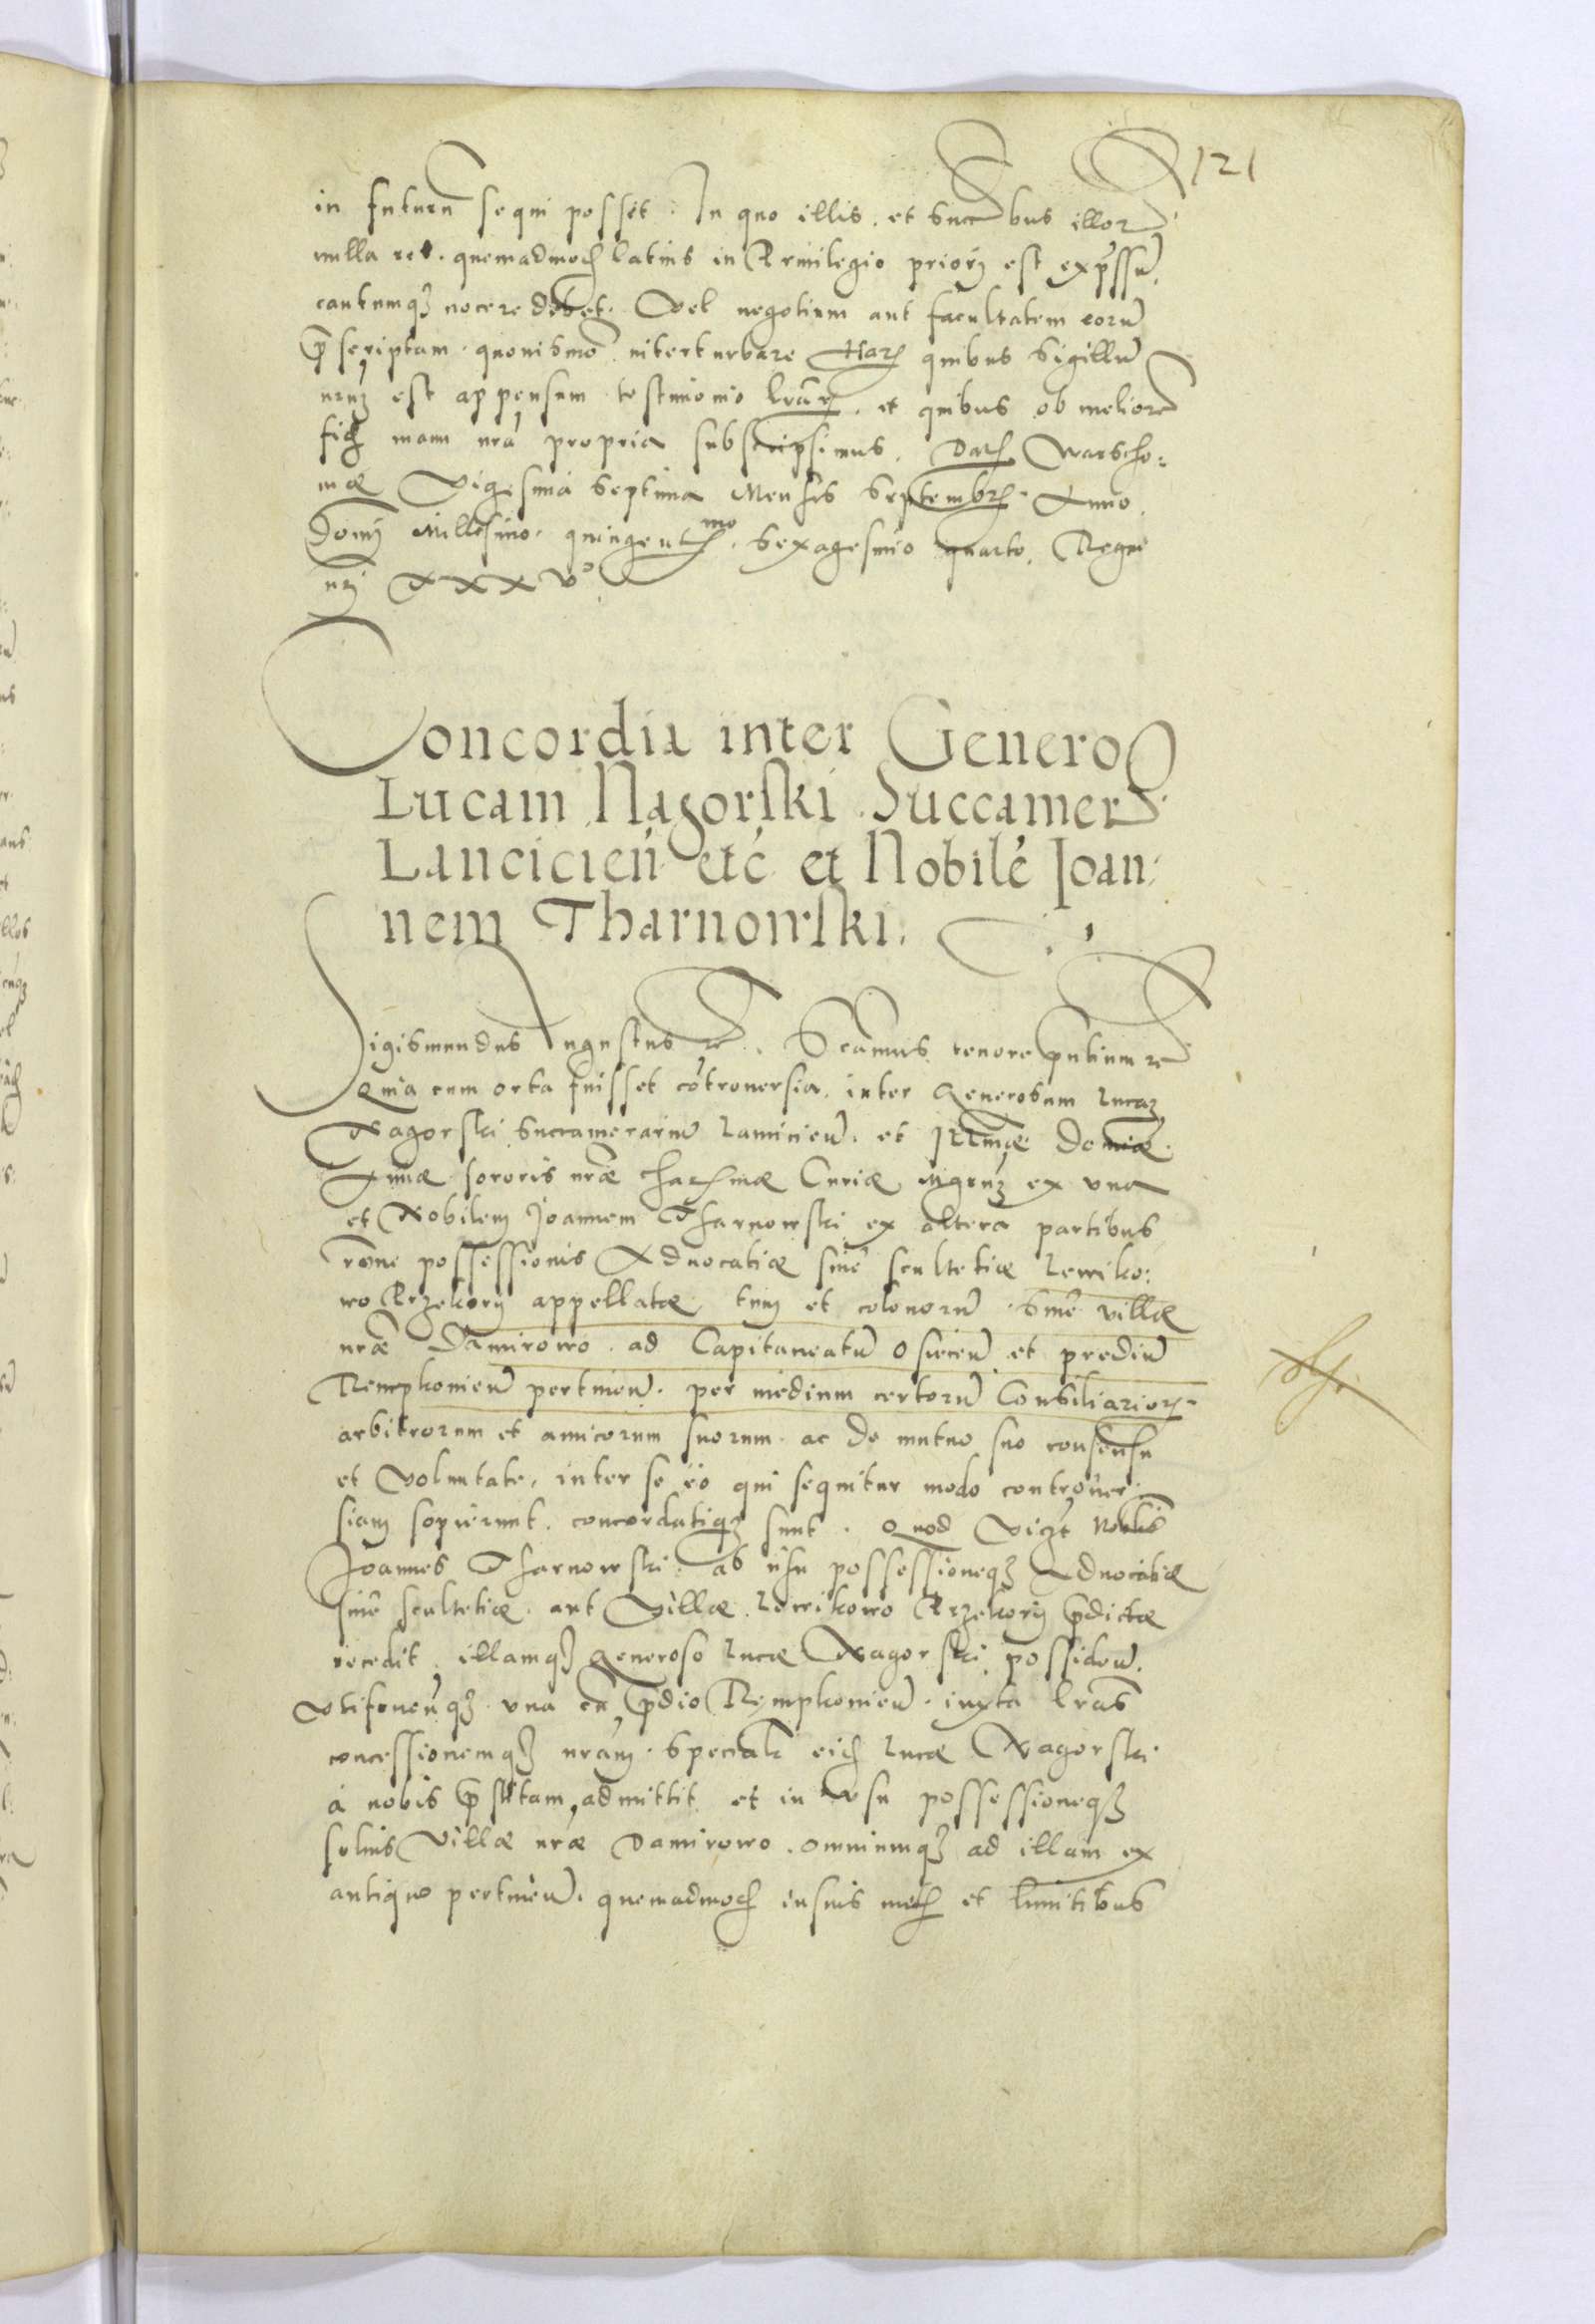 121
in futurũ sequi posset. In quo illis. et Succ bus illor
nulla res. quemadmod latius in Priuilegio priorj est expssũ,
cautumq nocere debet. Vel negotium aut facultatem eorũ
pscriptam quouismõ interturbare Har quibus Sigillũ
nrũ est appensum testimonio lrar. et quibus ob meliorẽ
fid manu nrã propria subscripsimus. Dat Warscho:
uiæ Vigesima Septima Mensis Septembr Anno
Domj Millesimo quingentmo Sexagesimo quarto. Regni
nrj XXXVo
Concordia inter Generos
Lucam Nagorski Succamer
Lancicien̄ etc̄ et Nobilē Joan:
nem Tharnowski.
Sigismundus Augustus etc. Scamus tenore pntium etc
Quia cum orta fuisset cõtrouersia. inter Generosum Lucaz
Nagorski Succamerariũ Lancicieñ. et Illmæ Dominæ
Annæ sororis nræ charmæ Curiæ Mgrũ ex vna
et Nobilem Joannem Tharnowski ex altera partibus
rõne possessionis Aduocatiæ siue scultetiæ Lewiko:
wo Przekory appellatæ tum et colonorũ siue villæ
nræ Damirowo. ad Capitaneatũ Osiecen̄ et prediũ
Rempkowien̄ pertinen̄. per medium certorũ Consiliarior
arbitrorum et amicorum suorum. ac de mutuo suo consensu
et Voluntate, inter se eo qui sequitur modo controuer:
siam sopierunt. concordatiq sunt. Quod Vigẽ Noblis
Joannes Tharnowski ab vsu possessioneq Aduocatiæ
siue scultetiæ aut Villæ Lewikowo Przekory pdictæ
recedit, illamq Generoso Lucæ Nagorski possiden̄.
vtifruen̄q vna cũ pdio Rempkowien̄. iuxta lras
concessionemq nram Speciale eid Lucæ Nagorski
à nobis pstitam, admittit et in vsu possessioneq
solius Villæ nræ Damirowo. omniumq ad illam ex
antiquo pertinen̄. quemadmod in suis met et limitibus